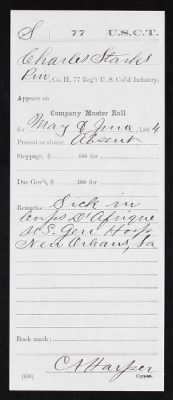 S 77 U.S.C.T.
Charles Starks
Pvt, Co. H, 77 Reg't U. S. Col'd Infantry.
Appears on
Company Muster Roll
for May & June, 1864
Present or absent Absent
Stoppage, $ 100 for
Due Gov't, $ 100 for
Remarks: Sick in
Corps D'Afrique
U.S. Genl Hosp
New Orleans, La
Book mark:
(858) C A Harper
Copyist.